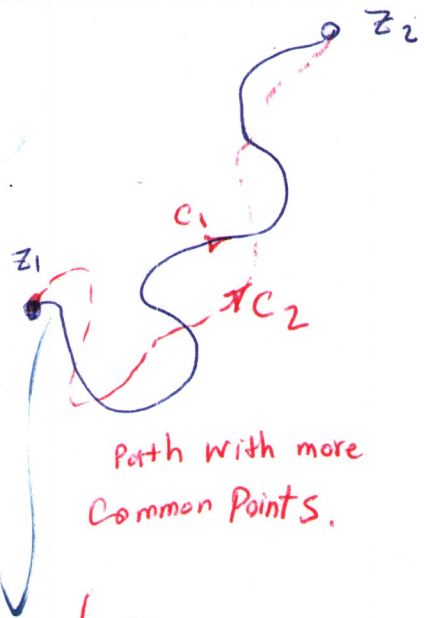 Z₂
C₁
Z₁
C₂
Path with more
Common Points.